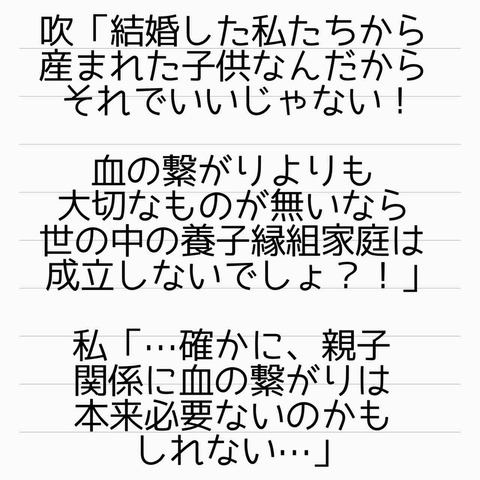 吹「結婚した私たちから
産まれた子供なんだから
それでいいじゃない！
血の繋がりよりも
大切なものが無いなら
世の中の養子縁組家庭は
成立しないでしょ？！」
私「…確かに、親子
関係に血の繋がりは
本来必要ないのかも
しれない…」